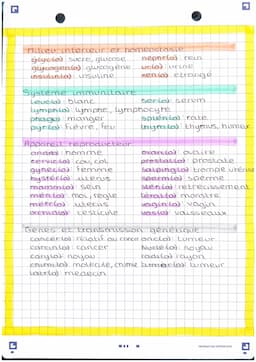 Milieu intérieur et homéostasie
glyc(o) sucre, glucose néphr(o) rein
glycogén(o) glycogène ur(o) urine
insulin(o) insuline xén(o) étrangé
Système immunitaire
leuc(o) blanc sér(o) sérum
lymph(o) lymphe, lymphocyte
phag(o) manger splén(o) rate
pyr(o) fièvre, feu thym(o) thymus, humeur
Appareil reproducteur
andr(o) homme ovair(o) ovaire
cervic(o) cou, col prostat(o) prostate
gynéc(o) femme salping(o) trompe utérine
hystér(o) utérus sperm(o) sperme
mamm(o) sein sten(o) retrécissement
mén(o) moi, règle térat(o) monstre
métr(o) utérus vagin(o) vagin
orchid(o) testicule vas(o) vaisseaux
Gènes et transmission génétique
cancér(o) relatif au cancer onc(o) tumeur
carcin(o) cancer nuclé(o) noyau
cary(o) noyau radi(o) rayon
chimi(o) molécule, chimie tumor(o) tumeur
iatr(o) médecin